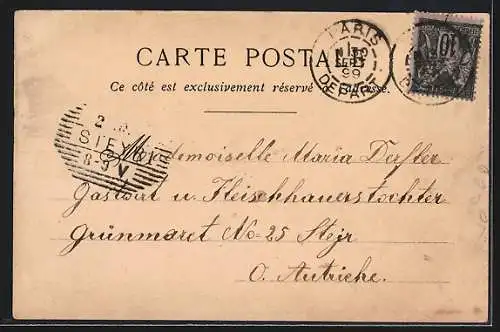 CARTE POSTALE
Ce côté est exclusivement réservé à l'adresse.
PARIS
SEPT
99
DEPART
10
2
STEY
8-9 V
Mademoiselle Maria Derfler
Gastwirt u. Fleischhauerstochter
Grünmarct No-25 Stejr
O. Autriche.